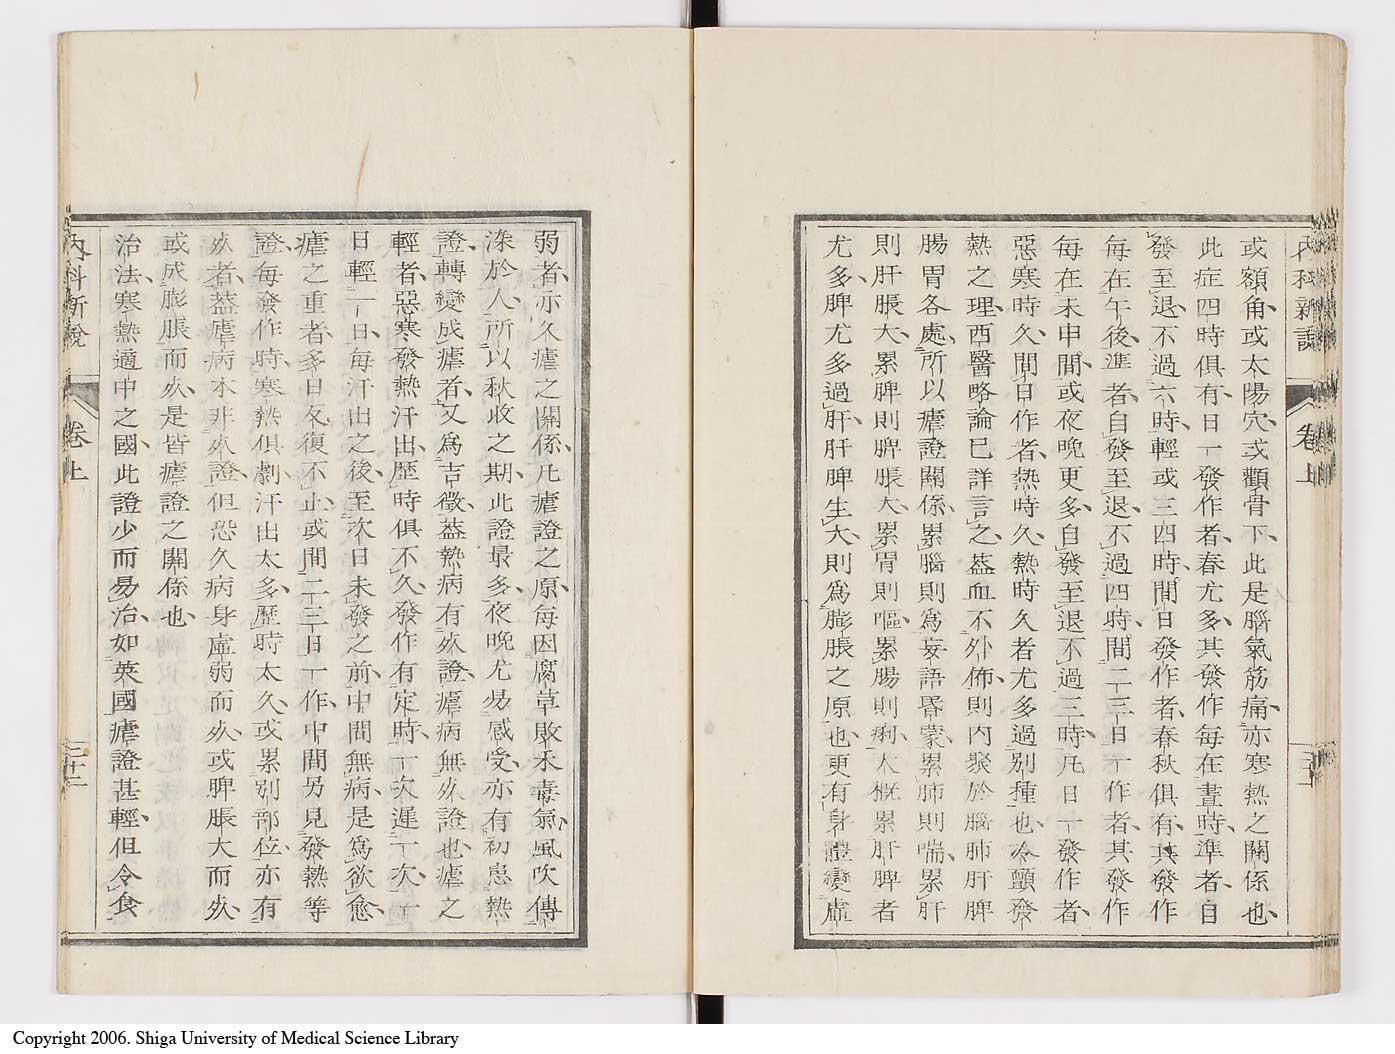 內科新說
卷上
或額角、或太陽穴、或顴骨下、此是腦氣筋痛、亦寒熱之關係也、
此症四時俱有、日一發作者、春尤多、其發作每在晝時、準者、自
發至退、不過六時、輕或三四時、間日發作者、春秋俱有、其發作
每在午後、準者、自發至退、不過四時、間二三日一作者、其發作
每在未申間、或夜晚更多、自發至退、不過三時、凡日一發作者、
惡寒時久、間日作者、熱時久、熱時久者尤多過別種也、冷顫發
熱之理、西醫略論已詳言之、蓋血不外佈、則內聚於腦肺肝脾
腸胃各處、所以瘧證關係、累腦則爲妄語昏蒙、累肺則喘、累肝
則肝脹大、累脾則脾脹大、累胃則嘔、累腸則痢、大概累肝脾者
尤多、脾尤多過肝、肝脾生大、則爲膨脹之原也、更有身體變虛
弱者、亦久瘧之關係、凡瘧證之原、每因腐草敗禾毒氣、風吹傳
染於人、所以秋收之期、此證最多、夜晚尤易感受、亦有初患熱
證、轉變成瘧者、又爲吉徵、蓋熱病有死證、瘧病無死證也、瘧之
輕者、惡寒發熱汗出、歷時俱不久、發作有定時、一次遲一次、一
日輕一日、每汗出之後、至次日未發之前、中間無病、是爲欲愈、
瘧之重者、多日反復不止、或間二三日一作、中間另見發熱等
證、每發作時、寒熱俱劇、汗出太多、歷時太久、或累別部位、亦有
死者、葢瘧病本非死證、但恐久病身虛弱而死、或脾脹大而死、
或成膨脹而死、是皆瘧證之關係也、
治法、寒熱適中之國、此證少而易治、如英國瘧證甚輕、但令食
內科新說
卷上
三十二
Copyright 2006. Shiga University of Medical Science Library